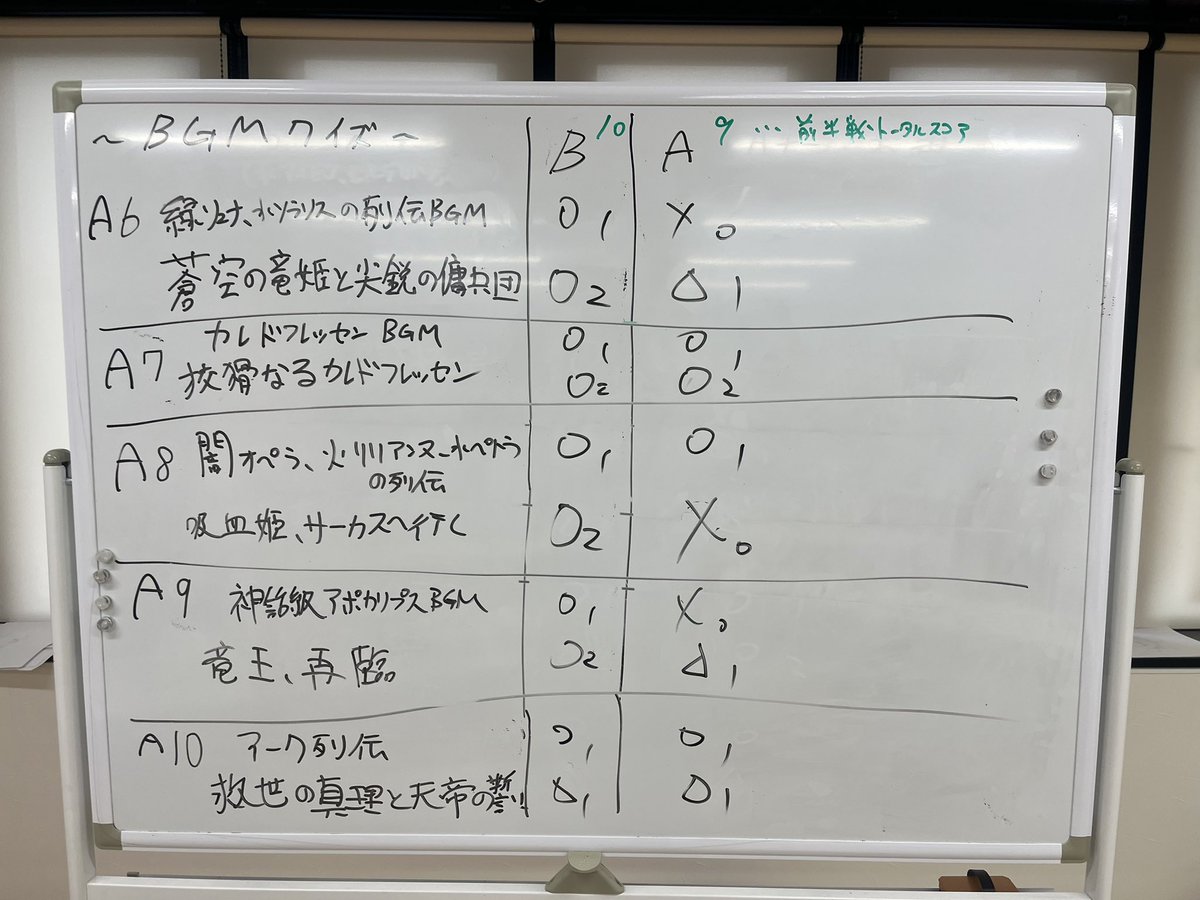 ~BGMクイズ~ B 10 A 9 … 前半戦トータルスコア
A6 緑リュナ、水ソラリスの列伝BGM O 1 X 0
蒼空の竜姫と尖鋭の傭兵団 O2 △ 1
カレドフレッセン BGM O 1 O 1
A7 狡猾なるカレドフレッセン O2 O2
A8 闇オペラ、火リリアンヌ、水ペトラ O 1 O 1
の列伝
吸血姫、サーカスヘイテC O2 X 0
A9 神話級アポカリプスBGM O 1 X 0
竜王、再臨 O2 △ 1
A10 アーク列伝 O 1 O 1
救世の真理と天帝の誓い △ 1 △ 1